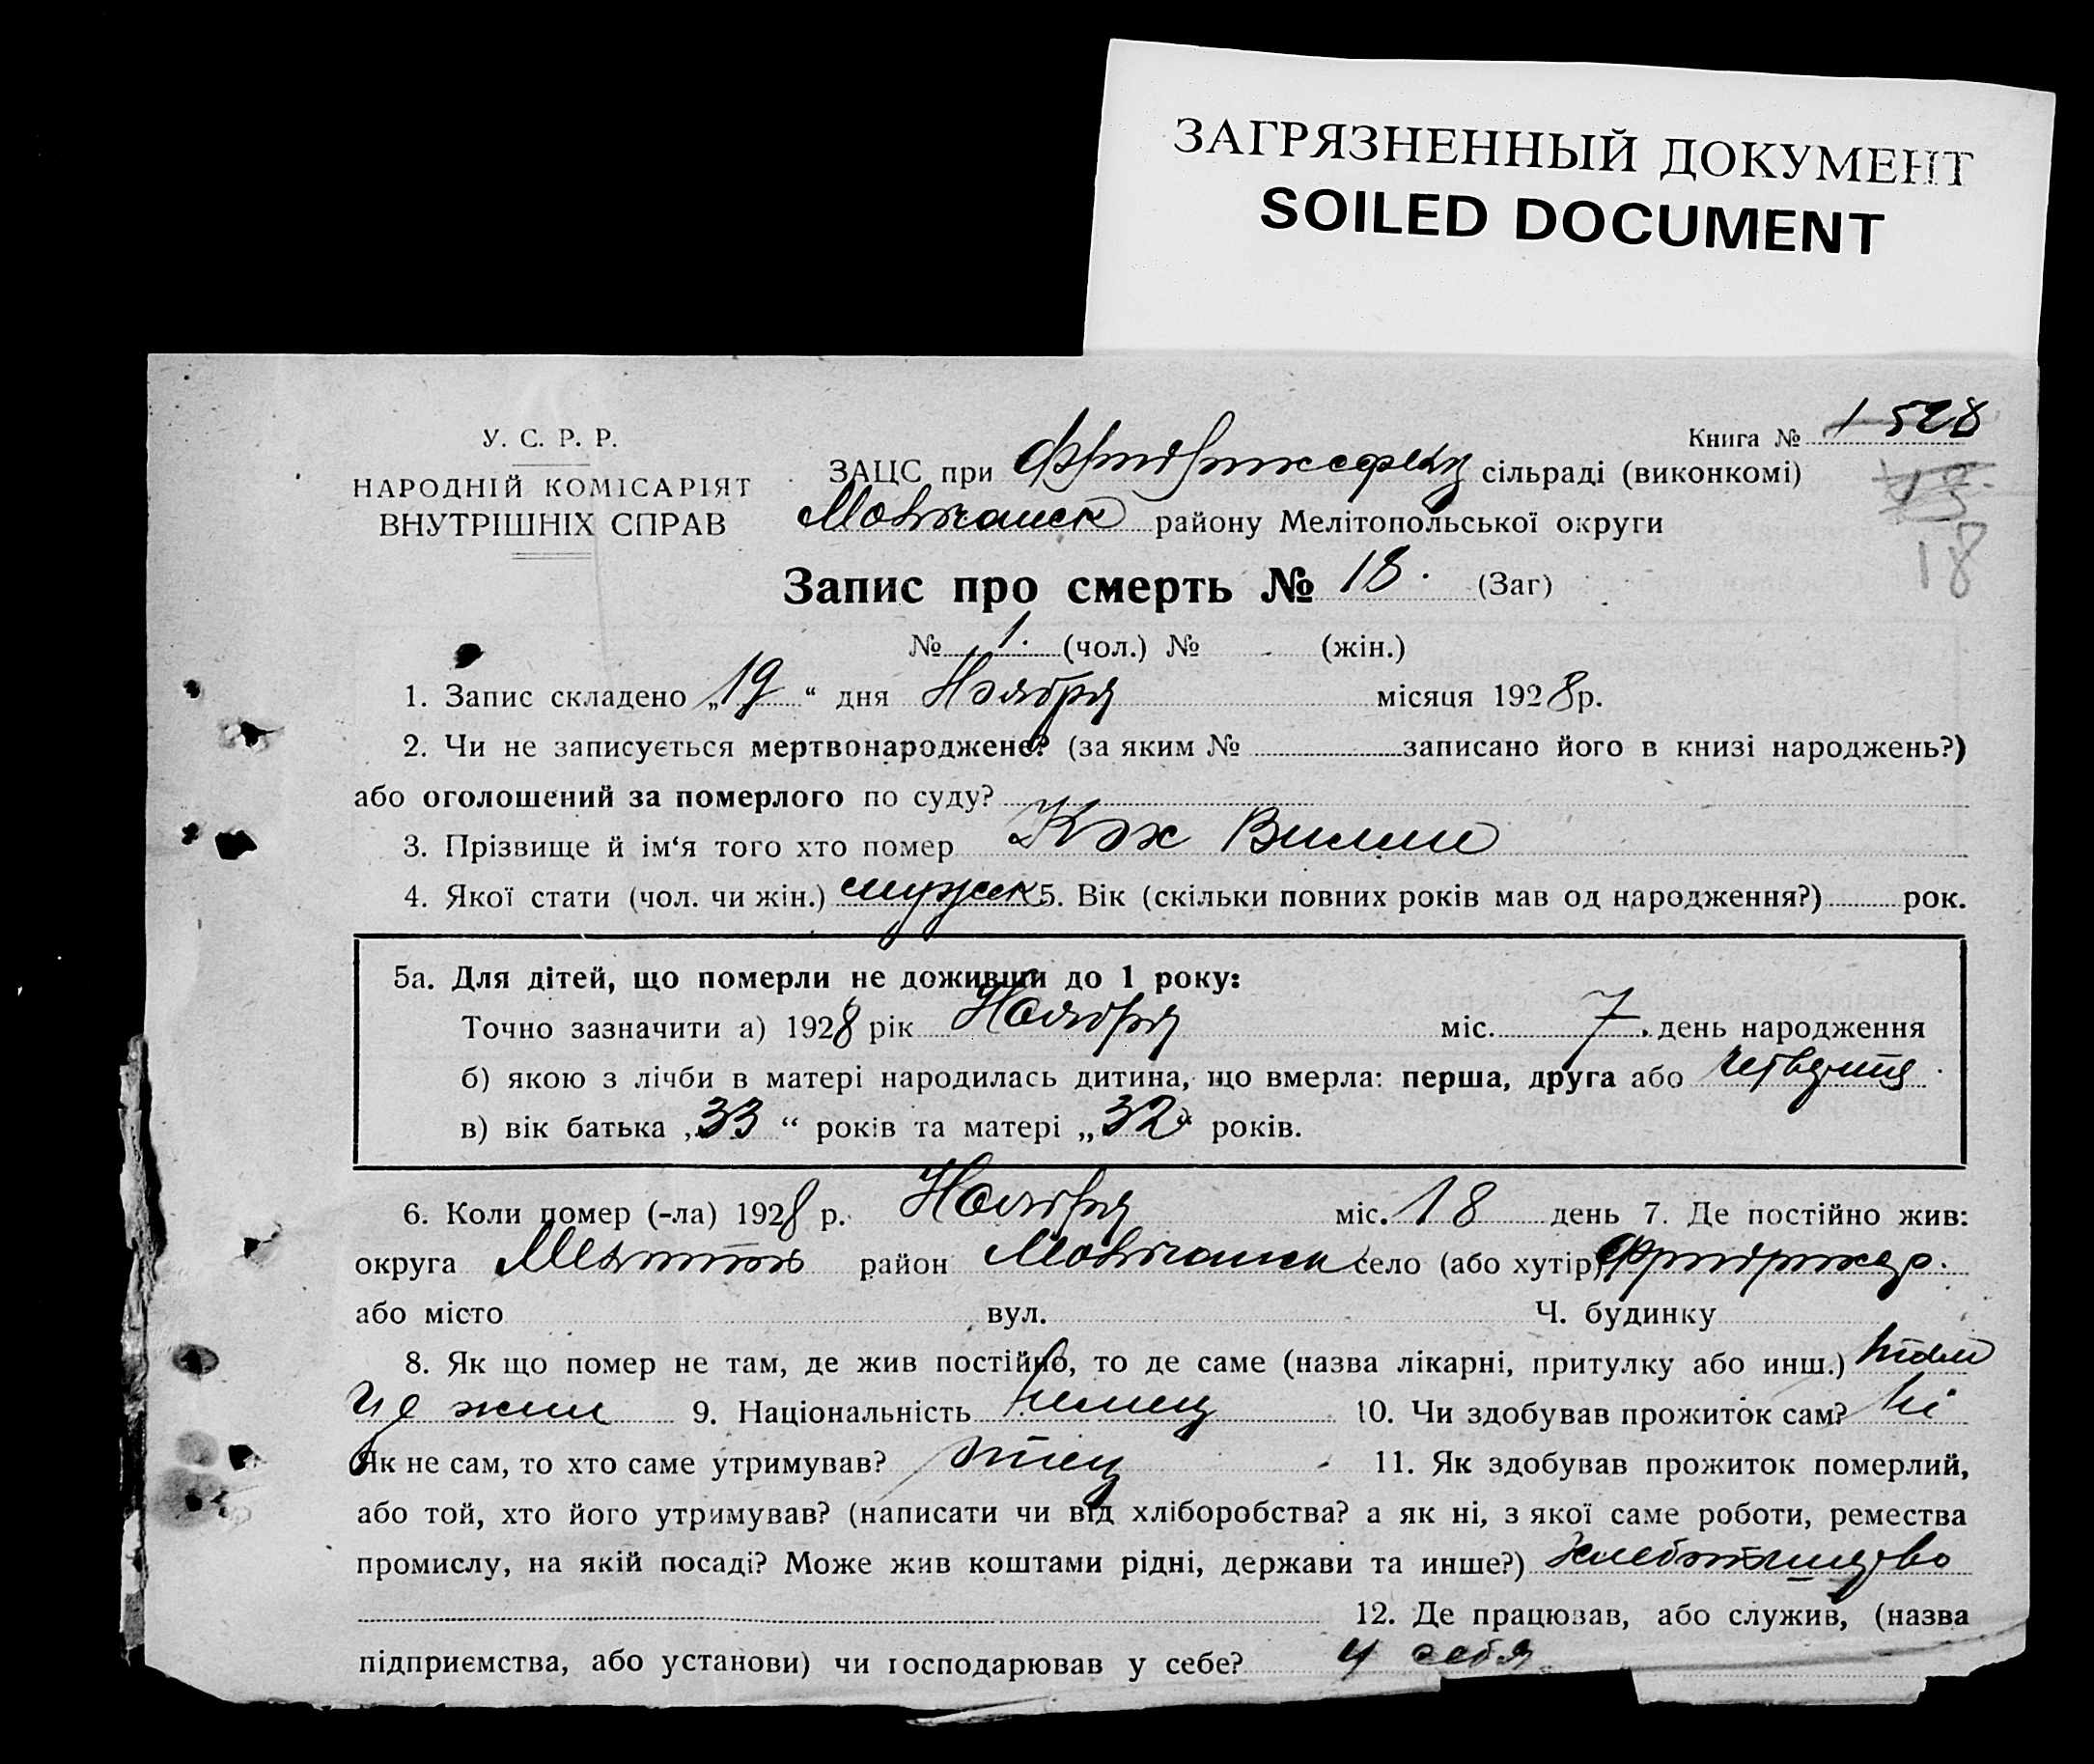 ЗАГРЯЗНЕННЫЙ ДОКУМЕНТ
SOILED DOCUMENT
У. С. Р. Р.
НАРОДНІЙ КОМІСАРІЯТ
ВНУТРІШНІХ СПРАВ
Книга № 1 528
ЗАЦС при сільраді (виконкомі)
району Мелітопольської округи
18
Запис про смерть № 18. (Заг)
№ 1. (чол.) № (жін.)
1. Запис складено „19“ дня Ноября місяця 1928 р.
2. Чи не записується мертвонароджене? (за яким № записано його в книзі народжень?)
або оголошений за померлого по суду?
3. Прізвище й ім‘я того хто помер Кох
4. Якої стати (чол. чи жін.) мужск 5. Вік (скільки повних років мав од народження?) рок.
5а. Для дітей, що померли не доживши до 1 року:
Точно зазначити а) 1928 рік Ноября міс. 7. день народження
б) якою з лічби в матері народилась дитина, що вмерла: перша, друга або
в) вік батька „33“ років та матері „32“ років.
6. Коли помер (-ла) 1928 р. Ноября міс. 18 день 7. Де постійно жив:
округа район село (або хутір)
або місто вул. Ч. будинку
8. Як що помер не там, де жив постійно, то де саме (назва лікарні, притулку або инш.) там
где жил 9. Національність немец 10. Чи здобував прожиток сам? ні
Як не сам, то хто саме утримував? отец 11. Як здобував прожиток померлий,
або той, хто його утримував? (написати чи від хліборобства? а як ні, з якої саме роботи, ремества
промислу, на якій посаді? Може жив коштами рідні, держави та инше?)
12. Де працював, або служив, (назва
підприємства, або установи) чи господарював у себе? у себя